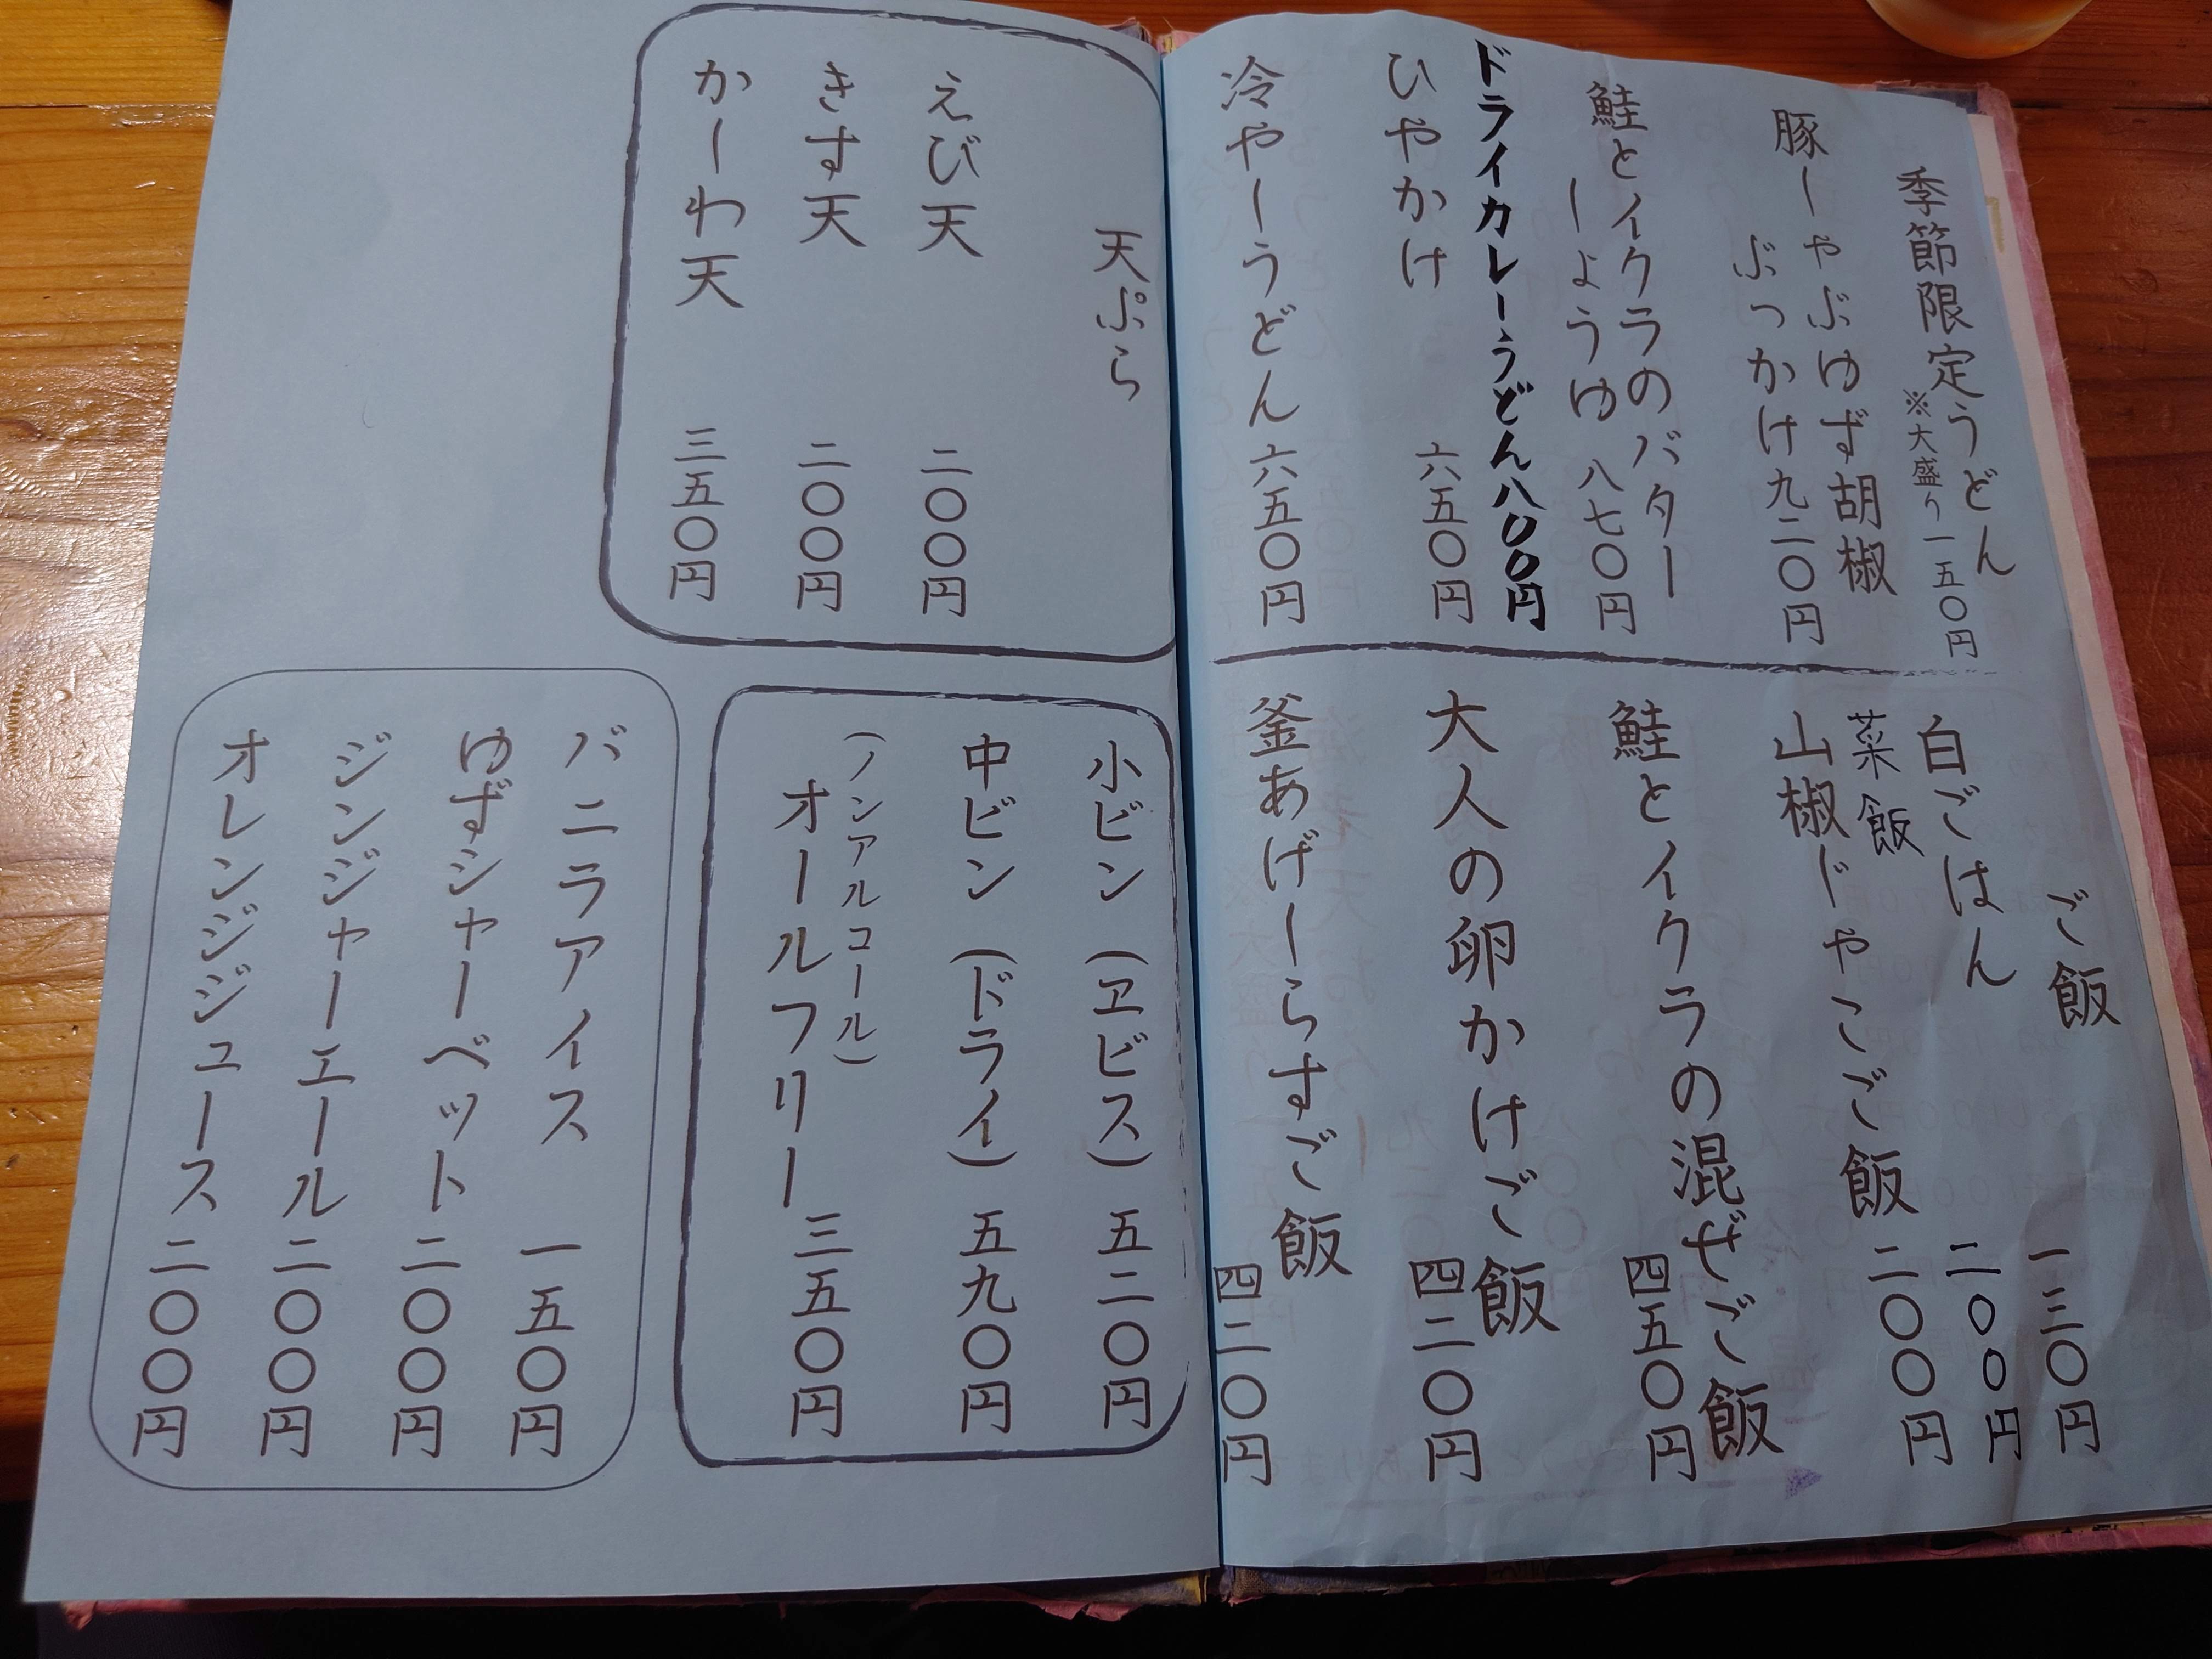 季節限定うどん
※大盛り一五〇円
豚しゃぶゆず胡椒
ぶっかけ九二〇円
鮭とイクラのバター
しょうゆ 八七〇円
ドライカレーうどん八〇〇円
ひやかけ 六五〇円
冷やしうどん 六五〇円
ご飯
白ごはん 一三〇円
菜飯 二〇〇円
山椒じゃこご飯 二〇〇円
鮭とイクラの混ぜご飯 四五〇円
大人の卵かけご飯 四二〇円
釜あげしらすご飯 四二〇円
天ぷら
えび天 二〇〇円
きす天 二〇〇円
かしわ天 三五〇円
小ビン(ヱビス) 五二〇円
中ビン(ドライ) 五九〇円
(ノンアルコール)
オールフリー 三五〇円
バニラアイス 一五〇円
ゆずシャーベット 二〇〇円
ジンジャーエール 二〇〇円
オレンジジュース 二〇〇円